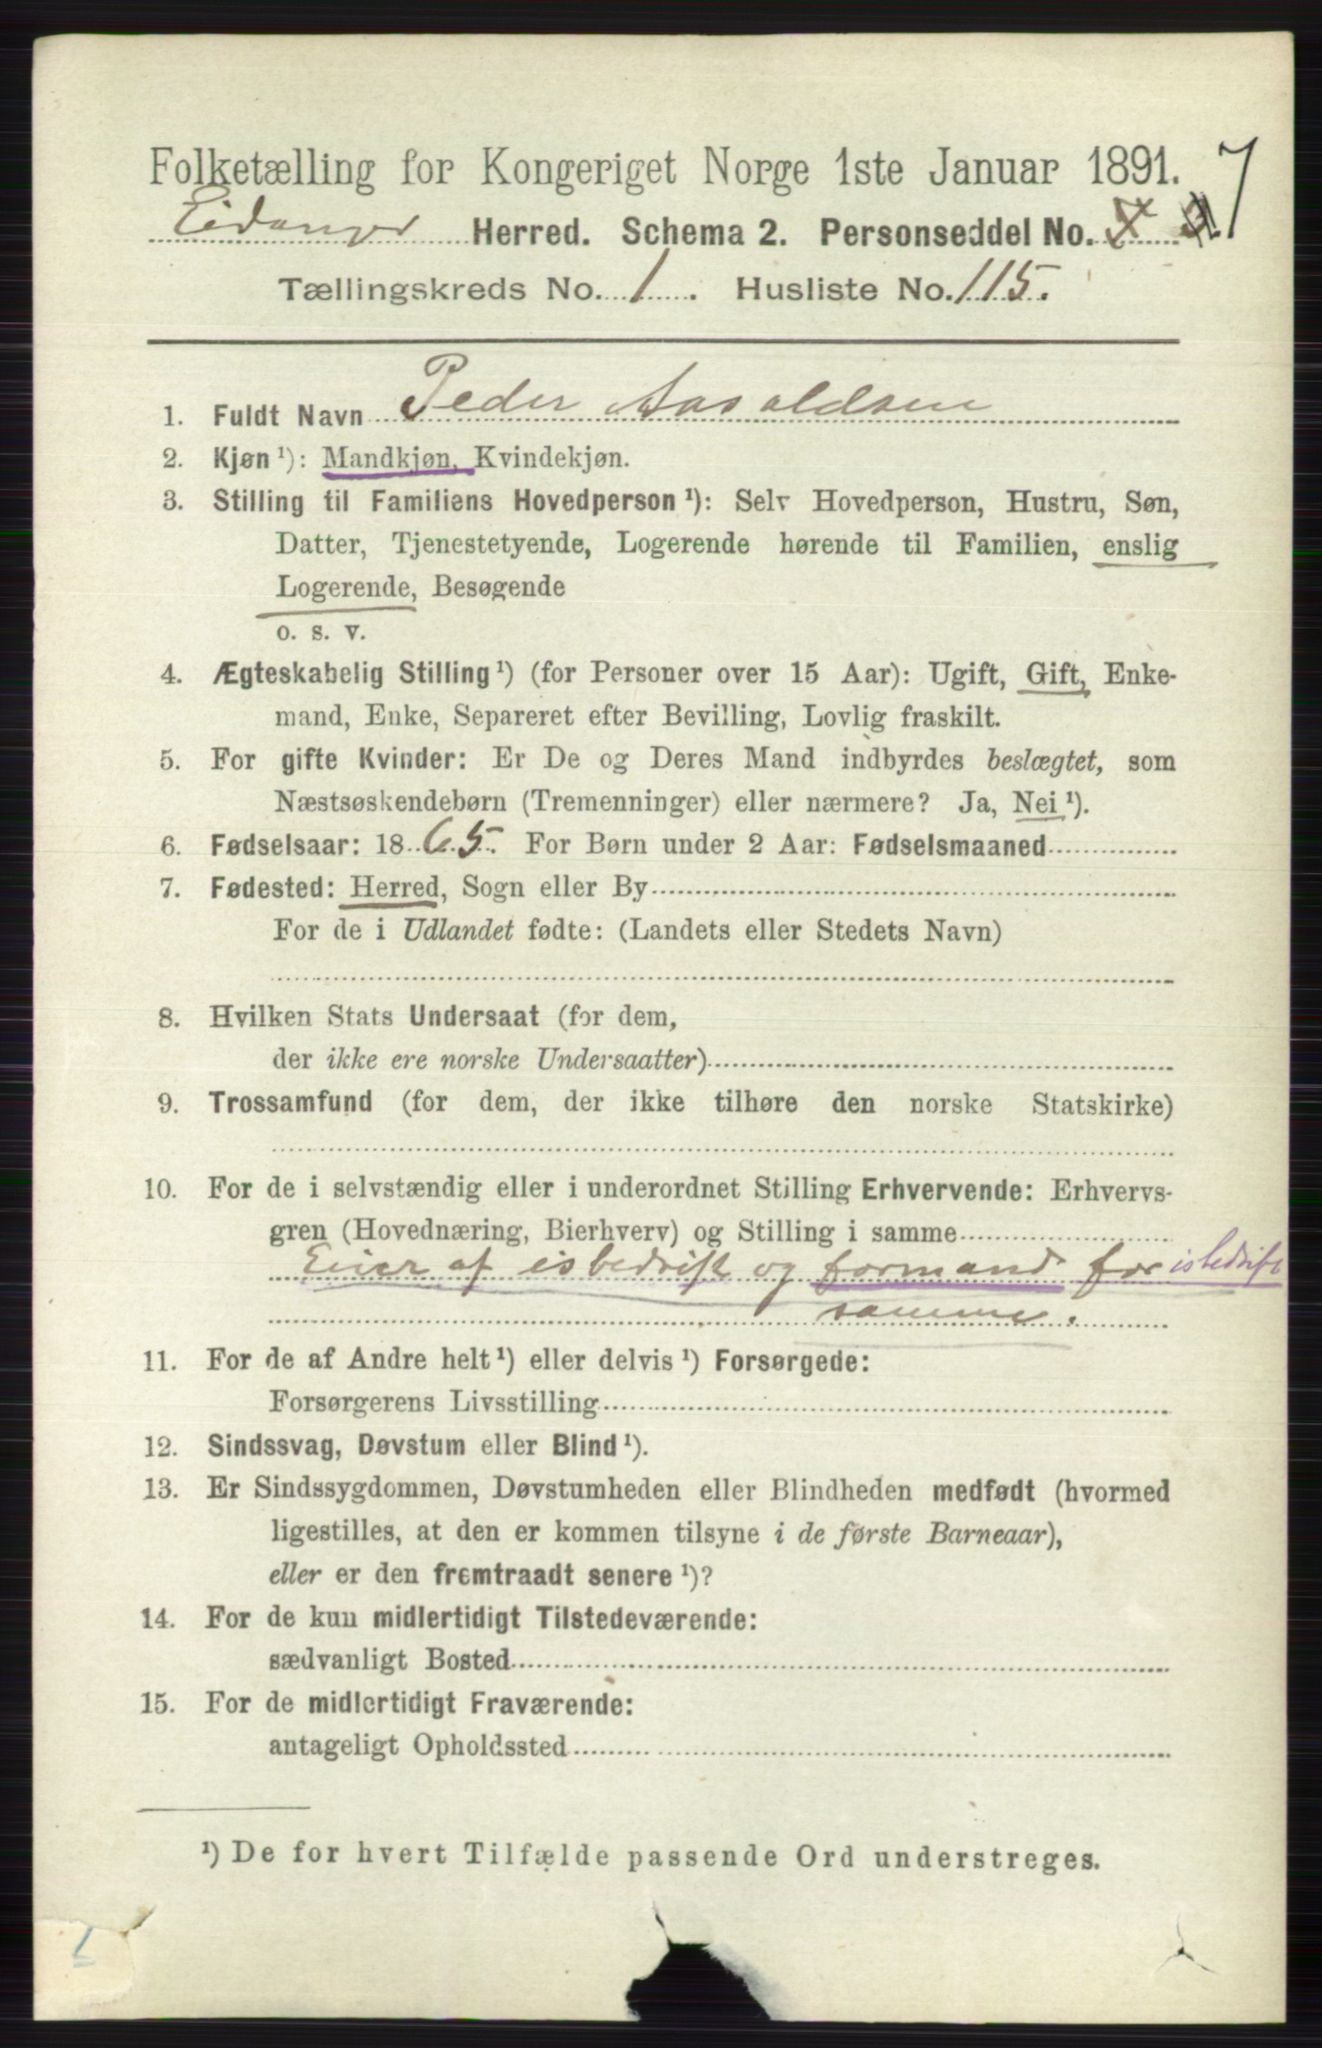 Folketælling for Kongeriget Norge 1ste Januar 1891. 7
Eidanger Herred. Schema 2. Personseddel No.
Tællingskreds No. 1. Husliste No. 115.
1. Fuldt Navn Peder Aasoldsen
2. Kjøn ¹): Mandkjøn, Kvindekjøn.
3. Stilling til Familiens Hovedperson ¹): Selv Hovedperson, Hustru, Søn,
Datter, Tjenestetyende, Logerende hørende til Familien, enslig
Logerende, Besøgende
o. s. v.
4. Ægteskabelig Stilling ¹) (for Personer over 15 Aar): Ugift, Gift, Enke-
mand, Enke, Separeret efter Bevilling, Lovlig fraskilt.
5. For gifte Kvinder: Er De og Deres Mand indbyrdes beslægtet, som
Næstsøskendebørn (Tremenninger) eller nærmere? Ja, Nei ¹).
6. Fødselsaar: 1865. For Børn under 2 Aar: Fødselsmaaned
7. Fødested: Herred, Sogn eller By
For de i Udlandet fødte: (Landets eller Stedets Navn)
8. Hvilken Stats Undersaat (for dem,
der ikke ere norske Undersaatter)
9. Trossamfund (for dem, der ikke tilhøre den norske Statskirke)
10. For de i selvstændig eller i underordnet Stilling Erhvervende: Erhvervs-
gren (Hovednæring, Bierhverv) og Stilling i samme
Eier af isbedrift og formand for isbedrift
samme.
11. For de af Andre helt ¹) eller delvis ¹) Forsørgede:
Forsørgerens Livsstilling
12. Sindssvag, Døvstum eller Blind ¹).
13. Er Sindssygdommen, Døvstumheden eller Blindheden medfødt (hvormed
ligestilles, at den er kommen tilsyne i de første Barneaar),
eller er den fremtraadt senere ¹)?
14. For de kun midlertidigt Tilstedeværende:
sædvanligt Bosted
15. For de midlertidigt Fraværende:
antageligt Opholdssted
¹) De for hvert Tilfælde passende Ord understreges.